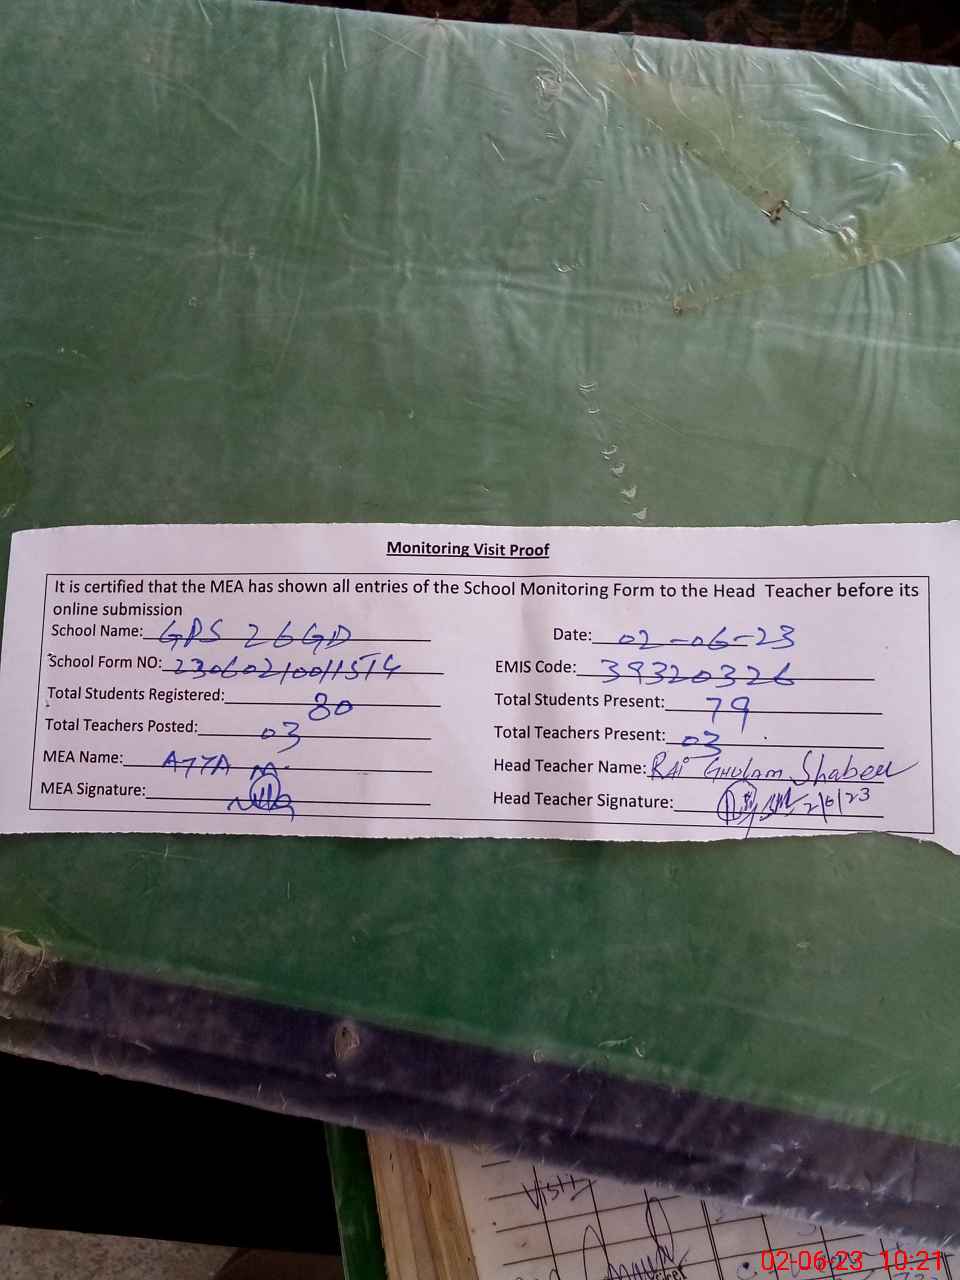 Monitoring Visit Proof
It is certified that the MEA has shown all entries of the School Monitoring Form to the Head Teacher before its
online submission
School Name: GPS 26GD Date: 02-06-23
School Form NO: EMIS Code: 39320326
Total Students Registered: 80 Total Students Present: 79
Total Teachers Posted: 03 Total Teachers Present: 03
MEA Name: ATTA M. Head Teacher Name: RAI GHULAM Shabeer
MEA Signature: Head Teacher Signature: 2/6/23
Visit
02-06-23 10:21